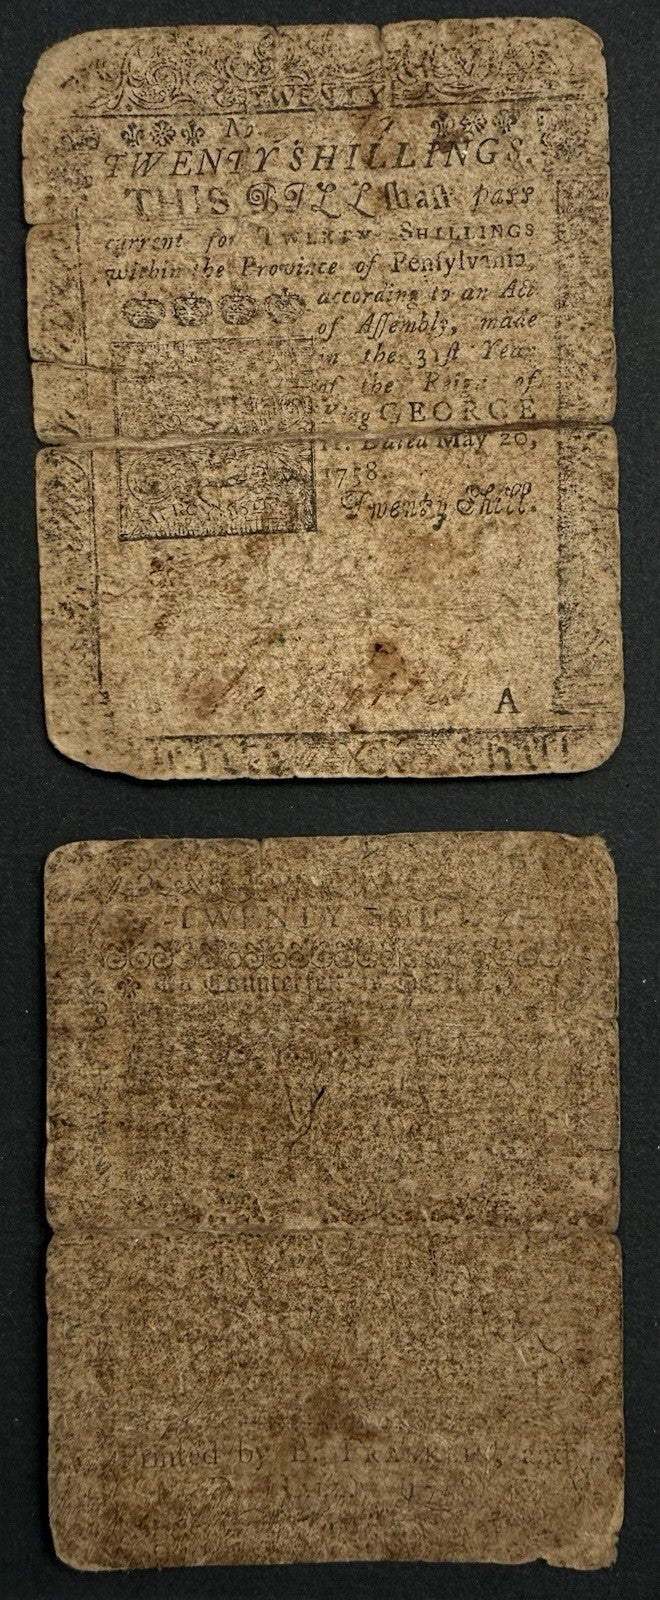 TWENTY
No
TWENTY SHILLINGS.
THIS BILL ſhall paſs
current for TWENTY SHILLINGS
within the Province of Penſylvania,
according to an Act
of Aſſembly, made
in the 31ſt Year
of the Reign of
King GEORGE
II. Dated May 20,
1758.
Twenty Shill.
A
TWENTY SHILL
To Counterfeit is DEATH.
Printed by B. FRANKLIN, and